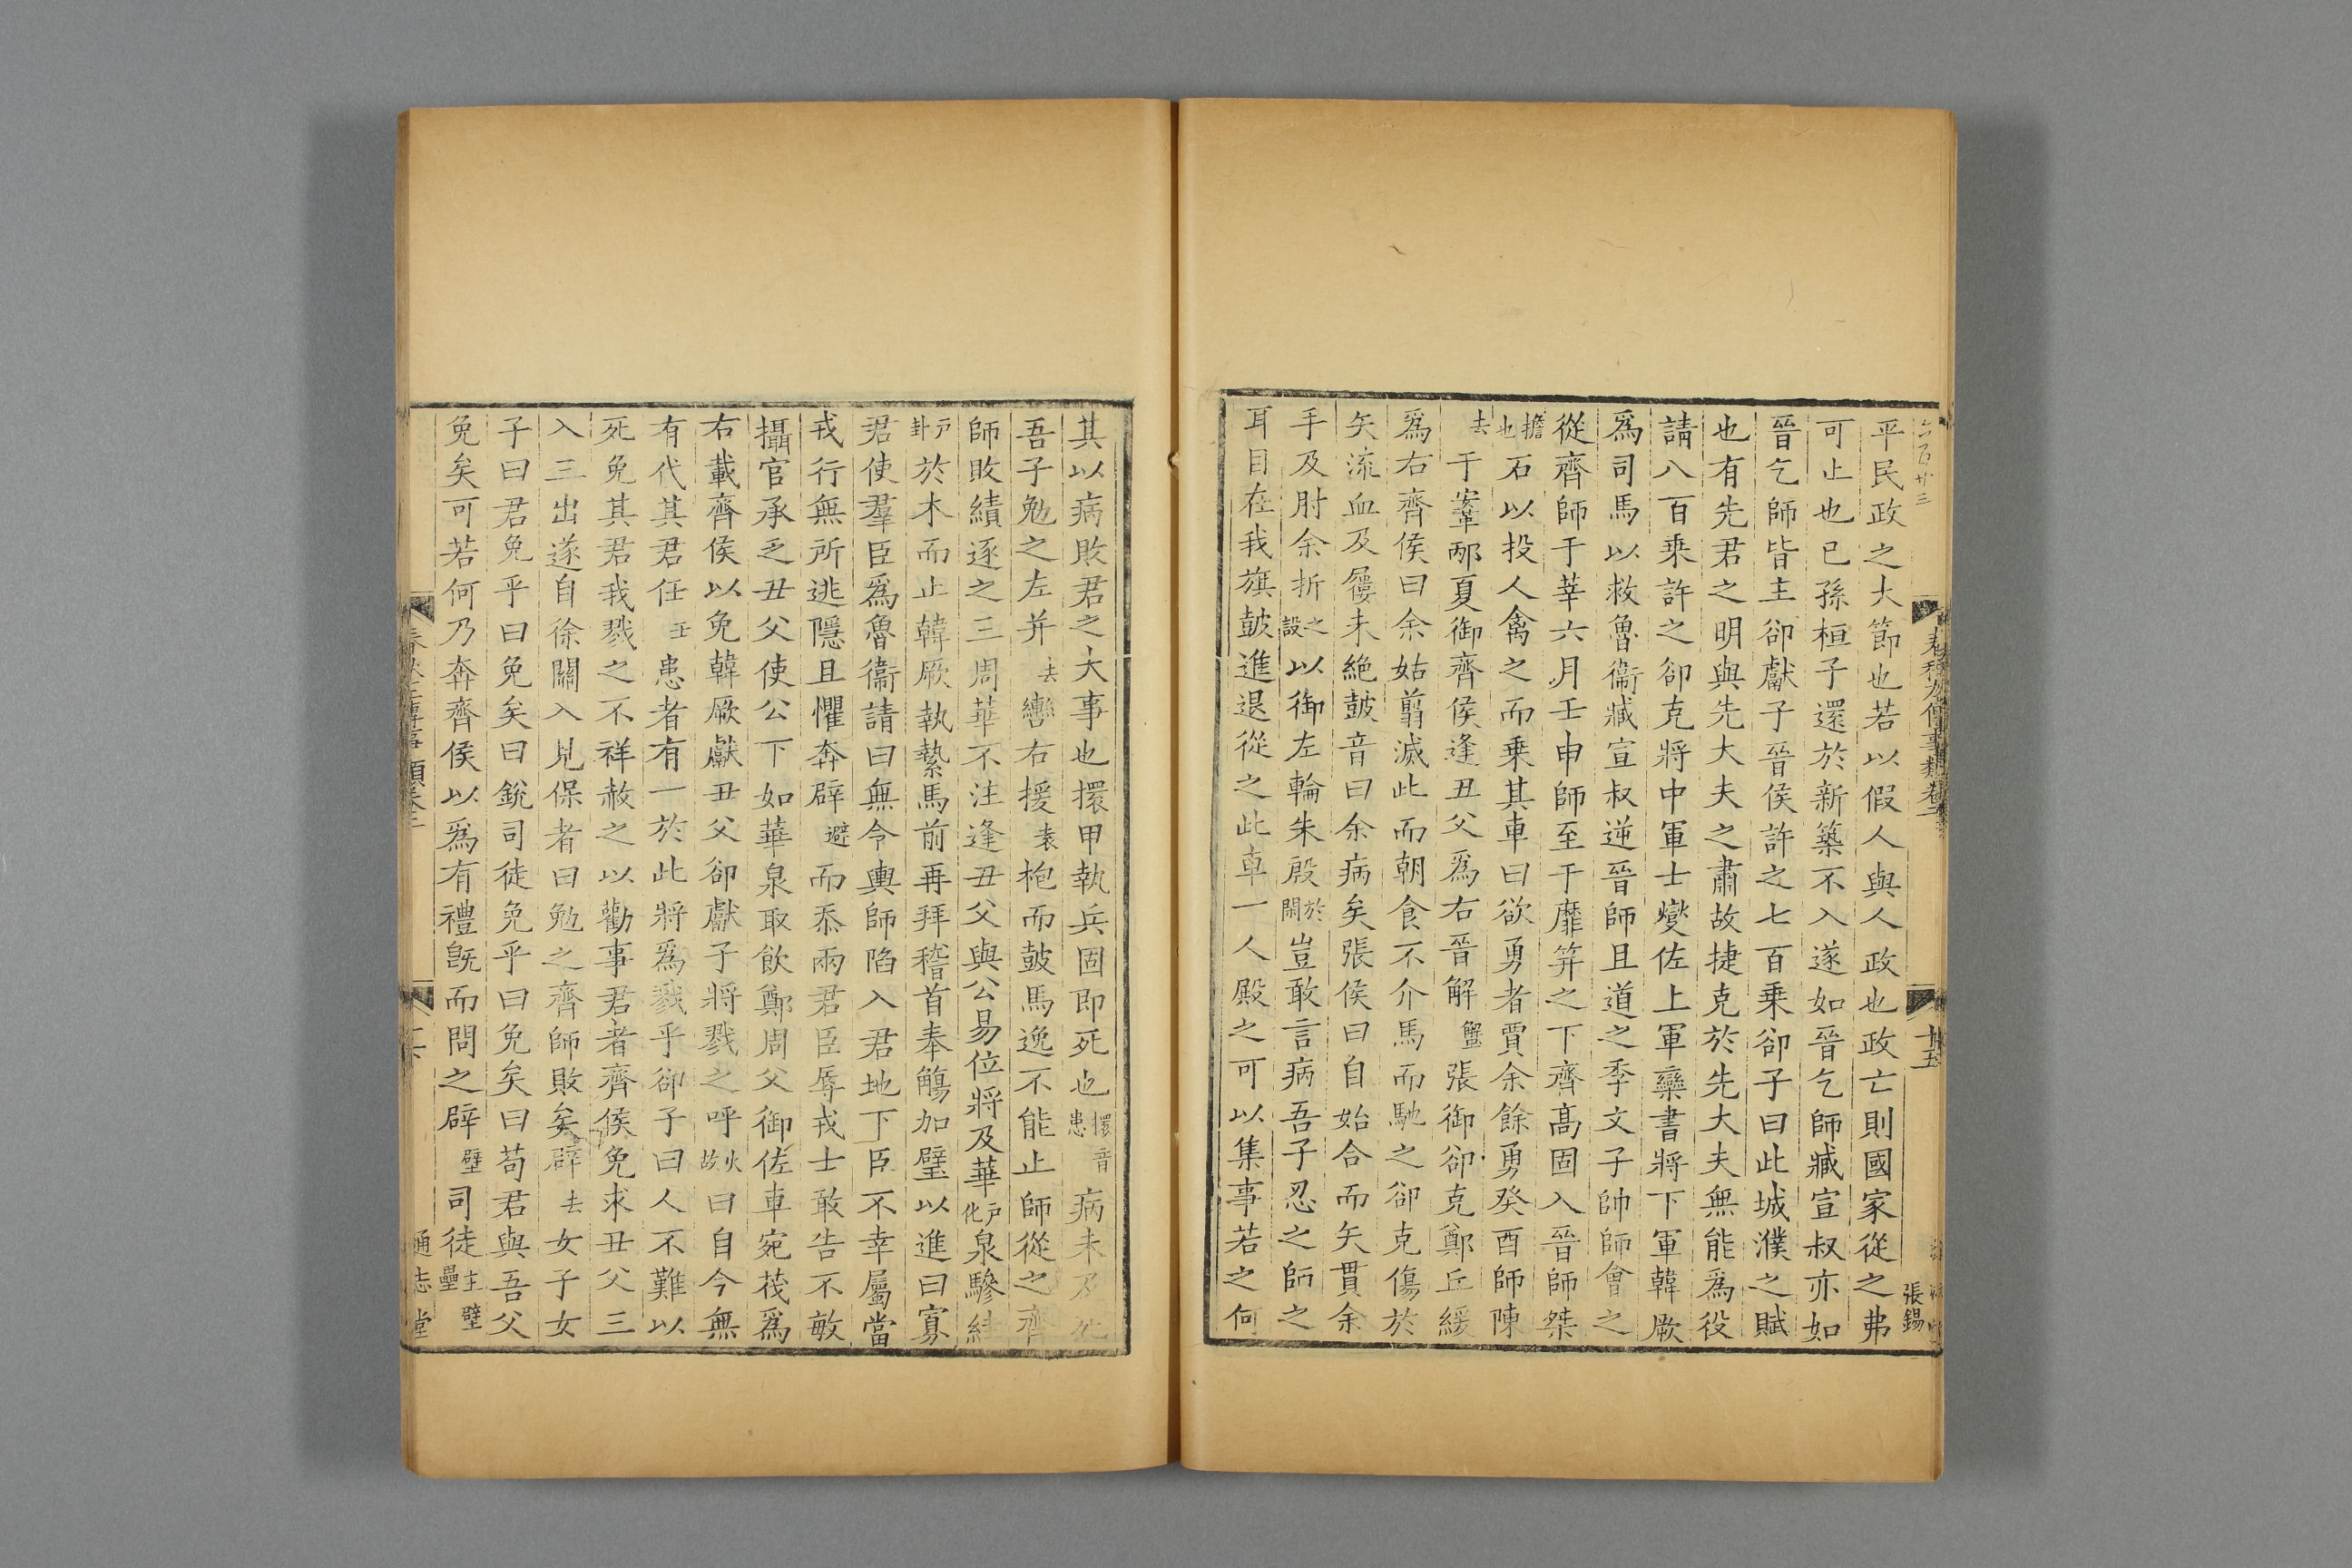 平民政之大節也若以假人與人政也政亡則國家從之弗
可止也已孫桓子還於新築不入遂如晉乞師臧宣叔亦如
晉乞師皆主卻獻子晉侯許之七百乗卻子曰此城濮之賦
也有先君之明與先大夫之肅故捷克於先大夫無能爲役
請八百乗許之卻克將中軍士燮佐上軍欒書將下軍韓厥
爲司馬以救魯衞臧宣叔逆晉師且道之季文子帥師會之
從齊師于莘六月壬申師至于靡笄之下齊髙固入晉師桀
擔也石以投人禽之而乗其車曰欲勇者賈余餘勇癸酉師陳
去于鞌邴夏御齊侯逢丑父爲右晉解蟹張御卻克鄭丘緩
爲右齊侯曰余姑翦滅此而朝食不介馬而馳之卻克傷於
矢流血及屨未絶鼓音曰余病矣張侯曰自始合而矢貫余
手及肘余折之設以御左輪朱殷於閑豈敢言病吾子忍之師之
耳目在我旗鼓進退從之此車一人殿之可以集事若之何
張錫
十五
其以病敗君之大事也擐甲執兵固即死也擐音患病未及死
吾子勉之左并去轡右援袁枹而鼓馬逸不能止師從之齊
師敗績逐之三周華不注逢丑父與公易位將及華戸化泉驂絓
戸卦於木而止韓厥執縶馬前再拜稽首奉觴加璧以進曰寡
君使羣臣爲魯衞請曰無令輿師陷入君地下臣不幸屬當
戎行無所逃隱且懼奔辟避而忝兩君臣辱戎士敢告不敏
攝官承乏丑父使公下如華泉取飲鄭周父御佐車宛茷爲
右載齊侯以免韓厥獻丑父卻獻子將戮之呼火故曰自今無
有代其君任壬患者有一於此將爲戮乎卻子曰人不難以
死免其君我戮之不祥赦之以勸事君者齊侯免求丑父三
入三出遂自徐關入見保者曰勉之齊師敗矣辟去女子女
子曰君免乎曰免矣曰銳司徒免乎曰免矣曰苟君與吾父
免矣可若何乃奔齊侯以爲有禮旣而問之辟壁司徒主壘壁
通志堂